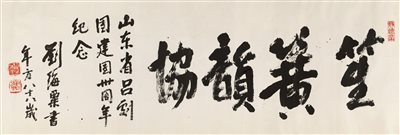 笙簧韻協
山东省吕劇
团建团卅周年
纪念
劉海粟書
年方八十八歲